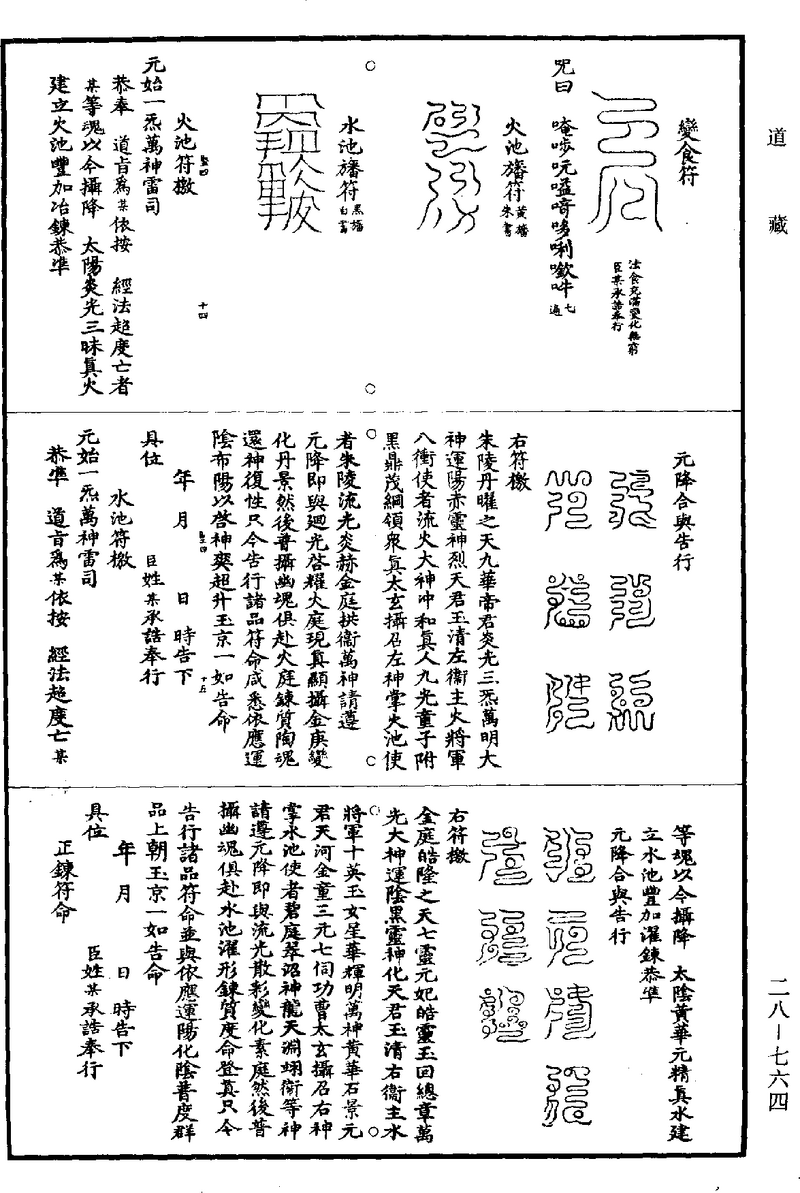 道藏
二八—七六四
變食符
法食充滿變化無窮
臣某承誥奉行
咒曰　唵㖫吭嗌喑哆唎㗴吽七遍
火池旛符黃旛朱書
水池旛符黑旛白書
火池符檄
十四
元始一炁萬神雷司
恭奉　道旨爲某依按　經法超度亡者
某等魂以今攝降　太陽炎光三昧真火
建立火池豐加冶鍊恭準
元降合與告行
右符檄
朱陵丹曜之天九華帝君炎光三炁萬明大
神運陽赤靈神烈天君玉清左衞主火將軍
八衝使者流火大神冲和真人九光童子附
黑鼎茂綱領衆真太玄攝召左神掌火池使
者朱陵流光炎赫金庭拱衞萬神請遵
元降即與迴光啓耀火庭現真顯攝金庚變
化丹景然後普攝幽魂俱赴火庭鍊質陶魂
還神復性只今告行諸品符命咸悉依應運
陰布陽以啓神爽超升玉京一如告命
年　月　日　時告下
十五
具位　臣姓某承誥奉行
水池符檄
元始一炁萬神雷司
恭準　道旨爲某依按　經法超度亡某
等魂以今攝降　太陰黃華元精真水建
立水池豐加濯鍊恭準
元降合與告行
右符檄
金庭皓隆之天七靈元妃皓靈玉回總章萬
光大神運陰黑靈神化天君玉清右衞主水
將軍十英玉女星華輝明萬神黃華石景元
君天河金童三元七伺功曹太玄攝召右神
掌水池使者碧庭翠沼神龍天淵翊衞等神
請遵元降即與流光散彩變化素庭然後普
攝幽魂俱赴水池濯形鍊質度命登真只今
告行諸品符命並與依應運陽化陰普度群
品上朝玉京一如告命
年　月　日　時告下
具位　臣姓某承誥奉行
正鍊符命